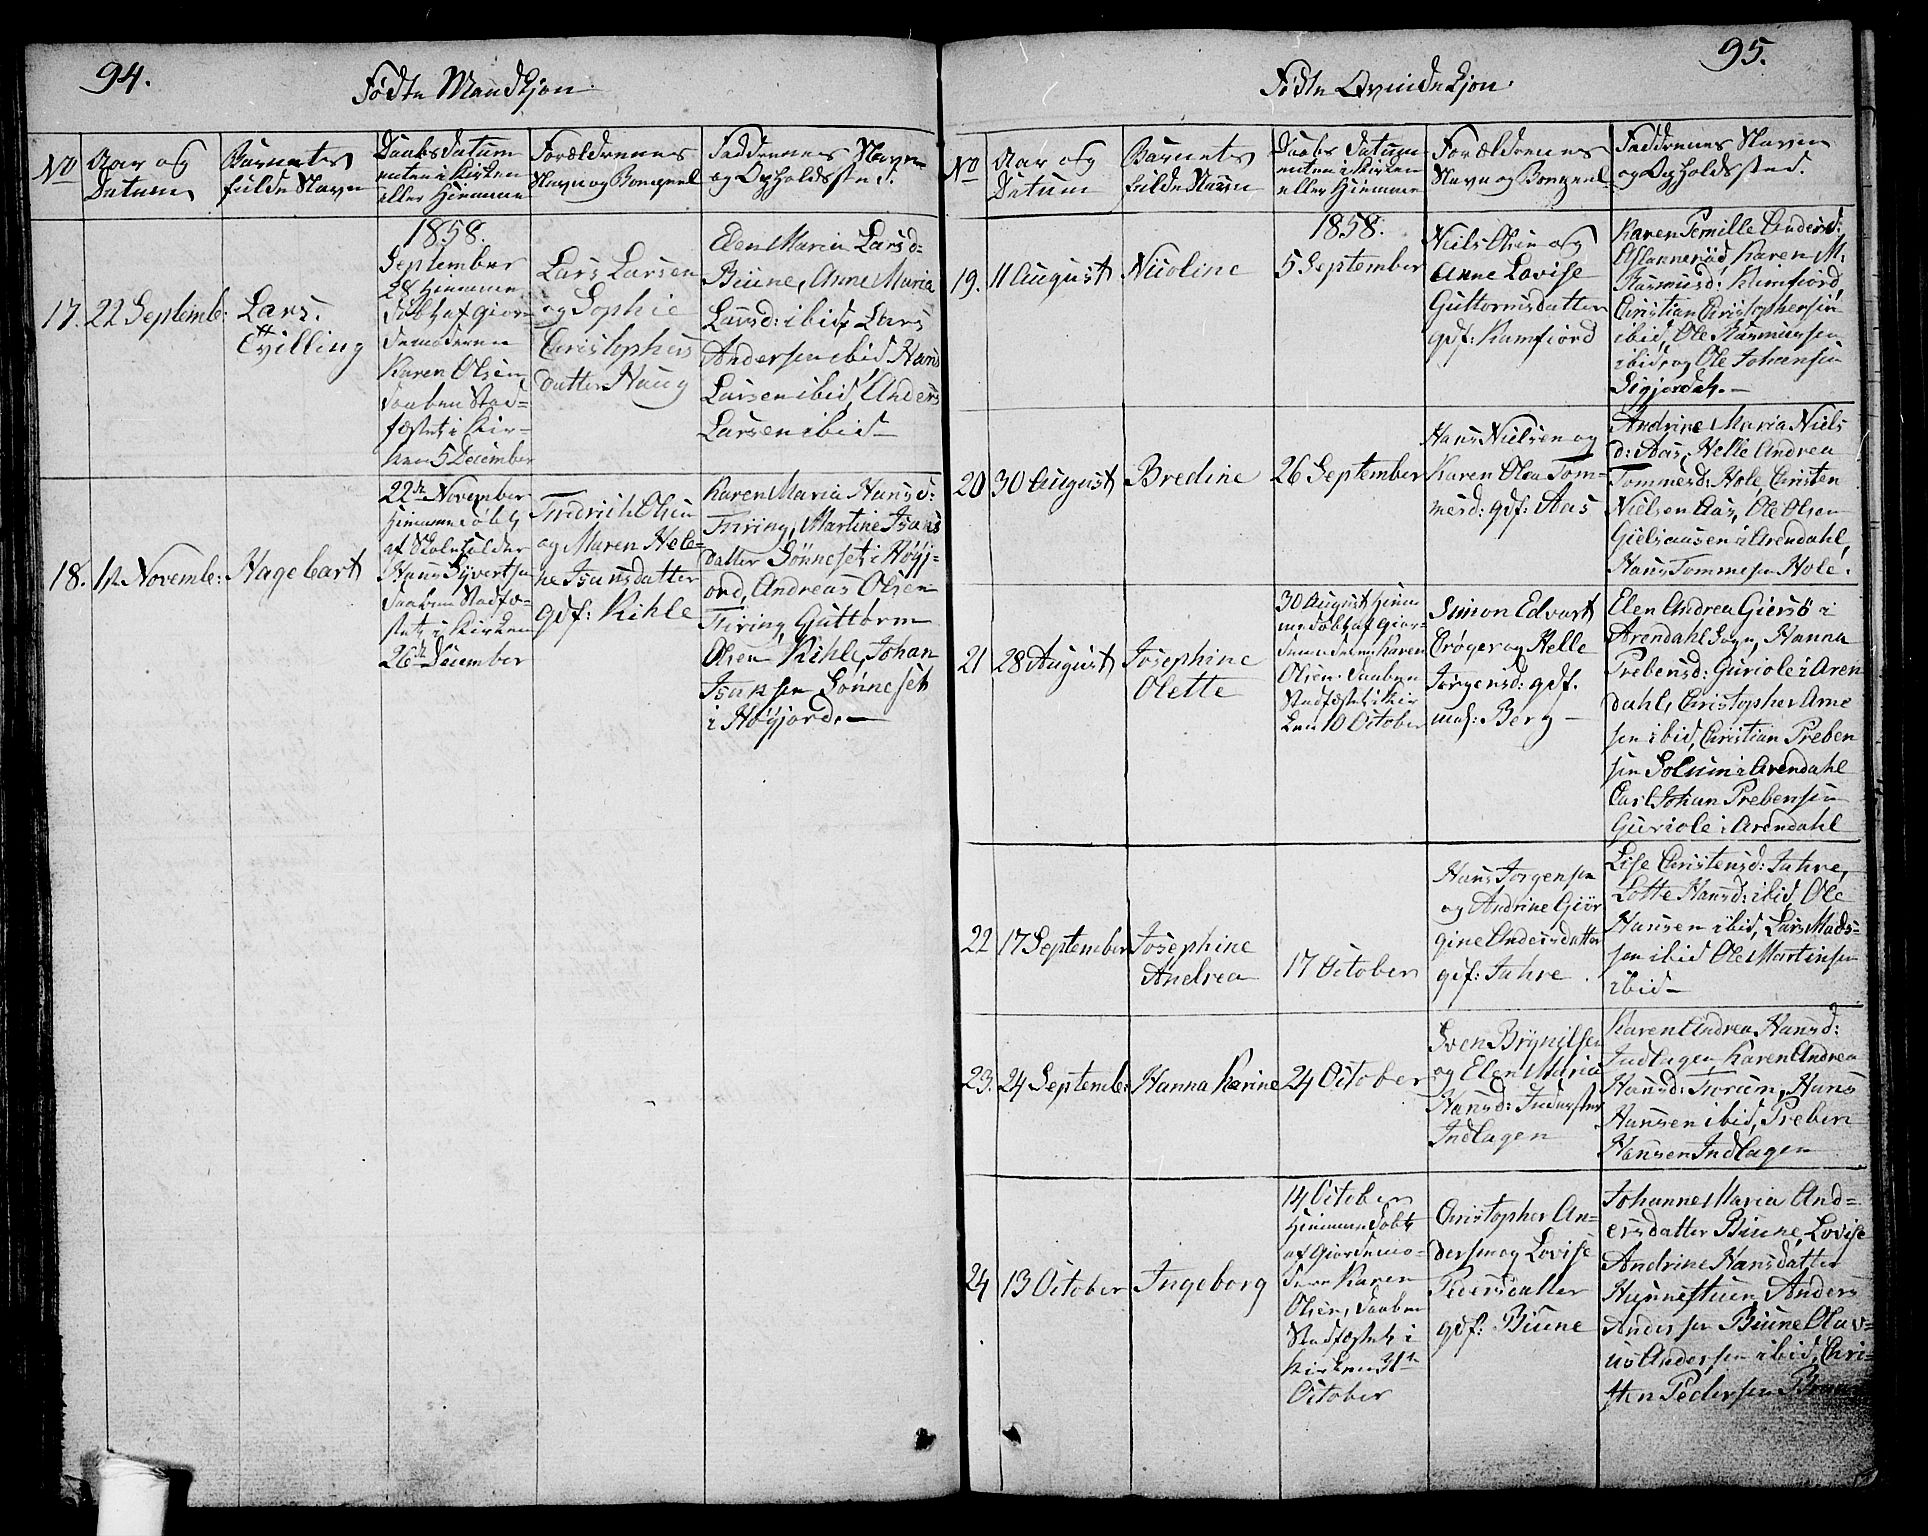 94.
Fødte Mandkjøn.
No
Aar og
Datum
Barnets
fulde Navn
Daabs Datum
enten i Kirken
eller Hiemme
Forældrenes
Navn og Bopæl
Faddrenes Navn
og Opholdssted.
17.
22 Septemb:
Lars.
Tvilling
1858.
September
28 Hiemme
døbt af gjor-
demoderen
Karen Olsen
daaben Stad-
fæstet i Kir-
ken 5 December
Lars Larsen
og Sophie
Christophers
datter Haug
Elen Maria Larsd:
Biune, Anne Maria
Larsd: ibid, Lars
Andersen ibid Hans
Larsen ibid, Anders
Larsen ibid
18.
1st Novembe:
Hagebart
22de November
Hiemme døbt
af Skoleholder
Hans Syvertsen
daaben Stadfæ-
stet i Kirken
26de December
Fredrich Olsen
og Maren Hele-
ne Isaksdatter
gdf: Kihle
Karen Maria Hansd:
Firing, Martine Isaks
datter Sønneset i Høyj-
ord, Andreas Olsen
Firing, Guttorm
Olsen Kihle, Johan
Isaksen Sønneset
i Høyjord.
95.
Fødte Qvindekjøn.
No
Aar og
Datum
Barnets
fulde Navn
Daabs Datum
enten i Kirken
eller Hiemme
Forældrenes
Navn og Bopæl
Faddrenes Navn
og Opholdssted.
19.
11 August
Nicoline
1858.
5 September
Niels Olsen og
Anne Lovise
Guttormsdatter
gdf: Ramfiord
Karen Pernille Andersd:
Karen M.
Rasmusd:
Christian Christophersen
ibid, Ole Rasmussen
ibid, og Ole Johansen
Sigjordet.
20
30 August
Bredine
26 September
Hans Nielsen og
Karen Olea Tom-
mesd: gdf: Aas
Andrine Maria Niels
d: Aas, Helle Andrea
Tommesd: Hole, Christen
Nielsen Aas, Ole Olsen
i Arendahl,
Hans Tommesen Hole.
21
28 August
Josephine
Olette
30 August Hiem
me døbt af Gior-
demoderen Karen
Olsen. Daaben
Stadfæstet i Kir
ken 10 October
Simon Edvart
Crøger og Helle
Jørgensd: gdf.
maf: Berg
Elen Andrea Giersø i
Arendahl Sogn, Hanna
Prebensd: Guriole i Aren
dahl, Christopher Arne
sen ibid, Christian Preben
sen Solum i Arendahl
Carl Johan Prebensen
Guriole i Arendahl
22
17 September
Josephine
Andrea
17 October
Hans Jørgensen
og Andrine Giør
gine Andersdatter
gdf: Jahre
Lise Christensd: Jahre,
Lotte Hansd: ibid, Ole
Hansen ibid, Lars Mads-
sen ibid Ole Martinsen
ibid
23.
24 Septemb:
Hanna Karine
24 October
Sven Brynilsen
og Elen Maria
Hansd: Inderster
Indlagen
Karen Andrea Hansd:
Indlagen, Karen Andrea
Hansd: Torum, Hans
Hansen ibid, Preben
Hansen Indlagen
24
13 October
Ingeborg
14 October
Hiemme døbt
af Giordemo-
deren Karen
Olsen, daaben
Stadfæstet i
Kirken 31te
October
Christopher An-
dersen og Lovise
Pedersdatter
gdf: Biune
Johanne Maria And-
ersdatter Biune, Lovise
Andrine Hansdatter
Anders
Andersen Biune Olav-
us Andersen ibid, Chri-
sten Pedersen